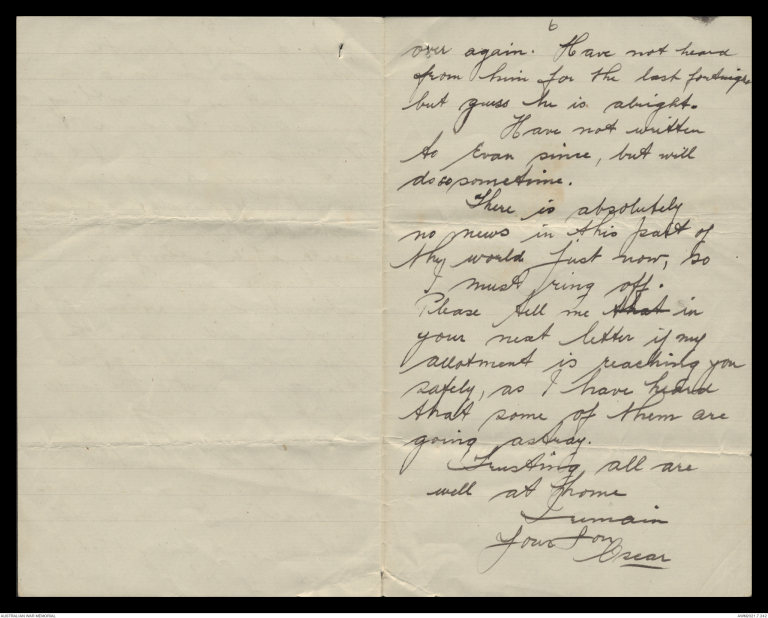 6
over again. Have not heard
from him for the last fortnight
but guess he is alright.
Have not written
to Evan since, but will
do so sometime.
There is absolutely
no news in this part of
the world just now, so
I must ring off.
Please tell me that in
your next letter if my
allotment is reaching you
safely, as I have heard
that some of them are
going astray.
Trusting all are
well at home
I remain
Your Son
Oscar
AUSTRALIAN WAR MEMORIAL